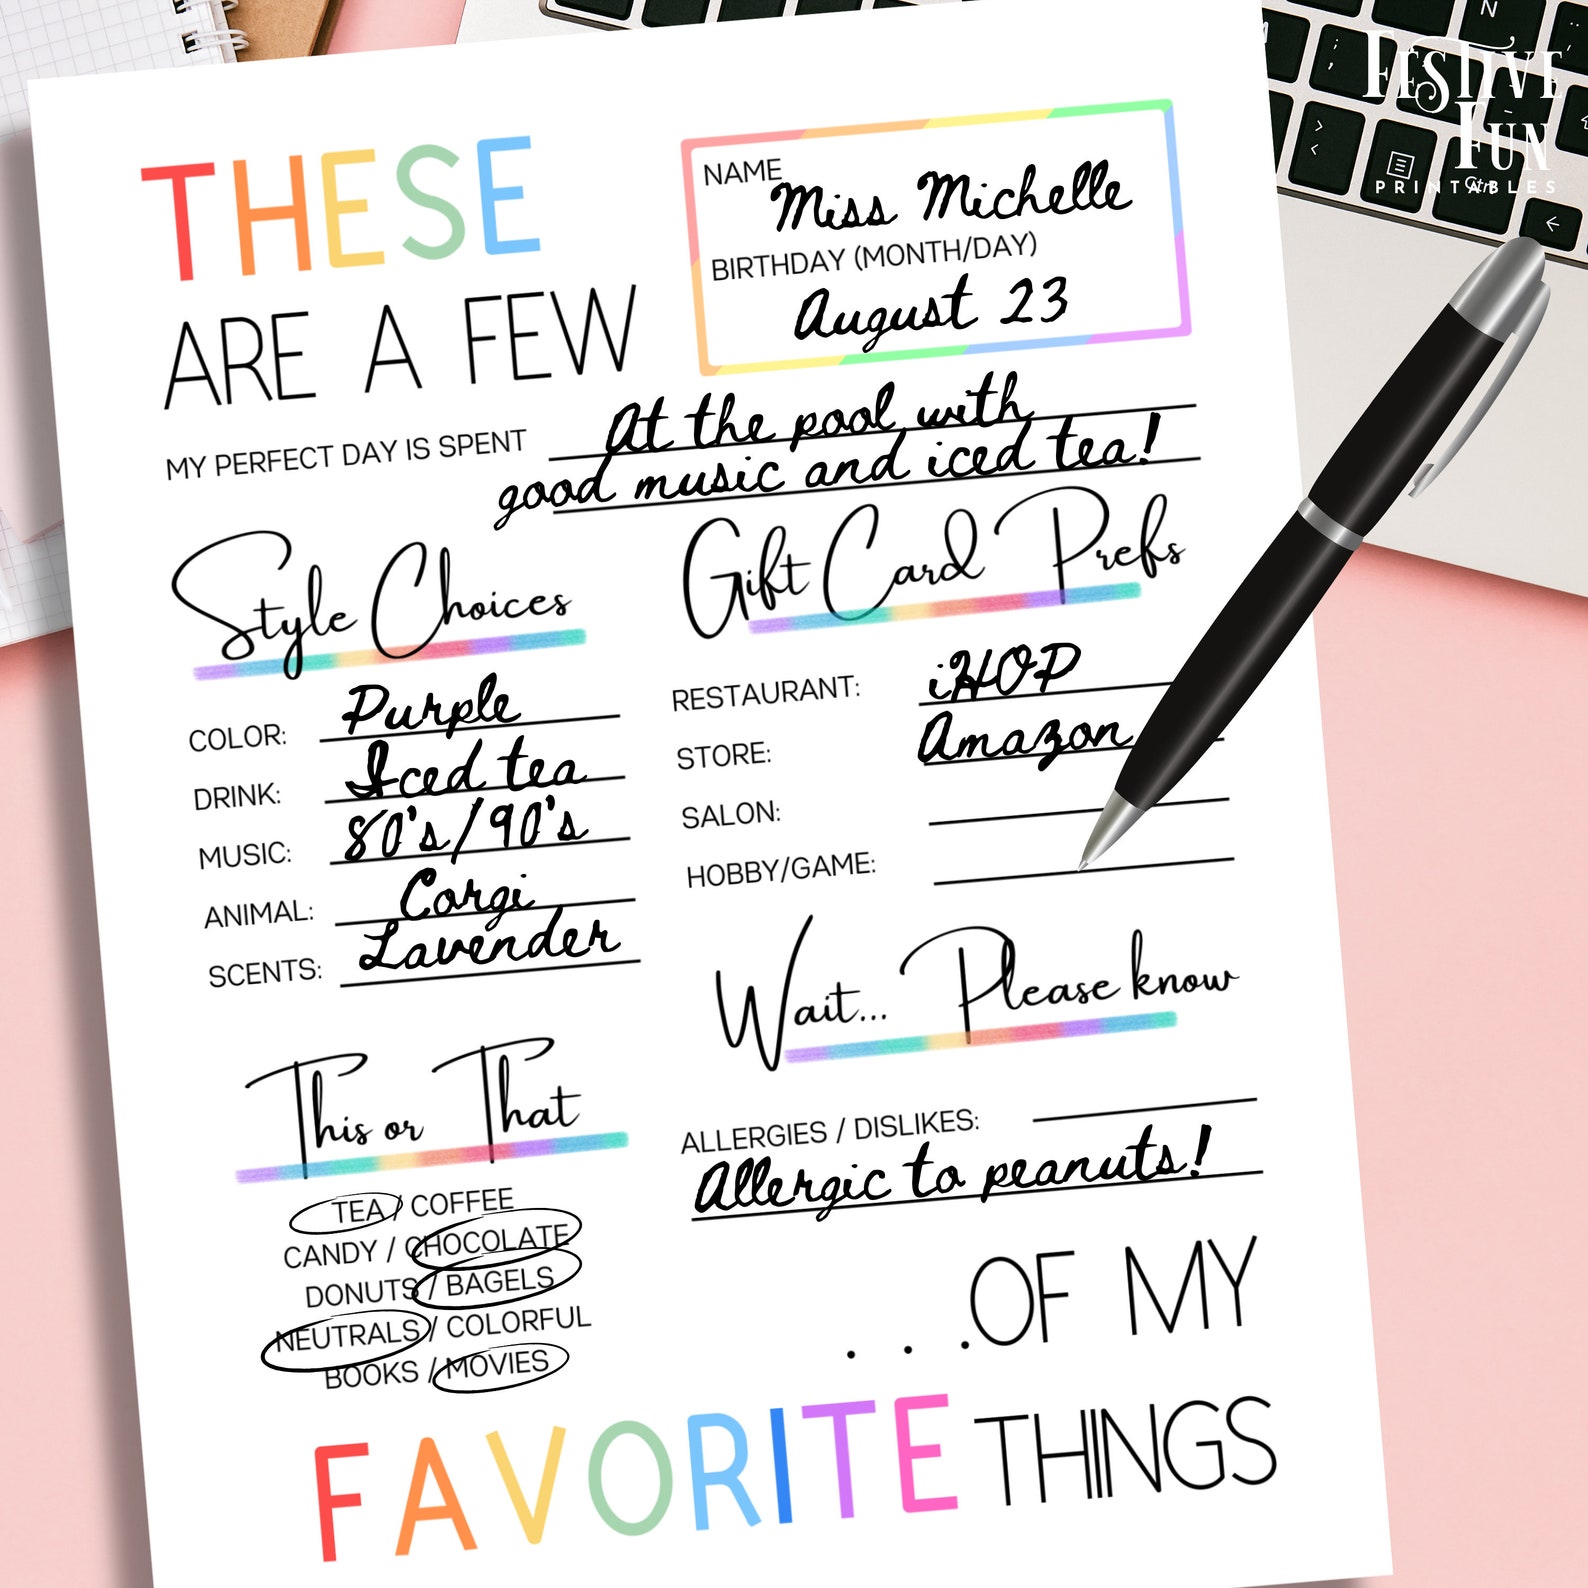 FESTIVE
FUN
PRINTABLES
Ctrl
N
THESE
ARE A FEW
NAME
Miss Michelle
BIRTHDAY (MONTH/DAY)
August 23
MY PERFECT DAY IS SPENT At the pool with
good music and iced tea!
Style Choices
COLOR: Purple
DRINK: Iced tea
MUSIC: 80's/90's
ANIMAL: Corgi
SCENTS: Lavender
Gift Card Prefs
RESTAURANT: iHOP
STORE: Amazon
SALON:
HOBBY/GAME:
This or That
TEA / COFFEE
CANDY / CHOCOLATE
DONUTS / BAGELS
NEUTRALS / COLORFUL
BOOKS / MOVIES
Wait... Please know
ALLERGIES / DISLIKES:
Allergic to peanuts!
. . .OF MY
FAVORITE THINGS